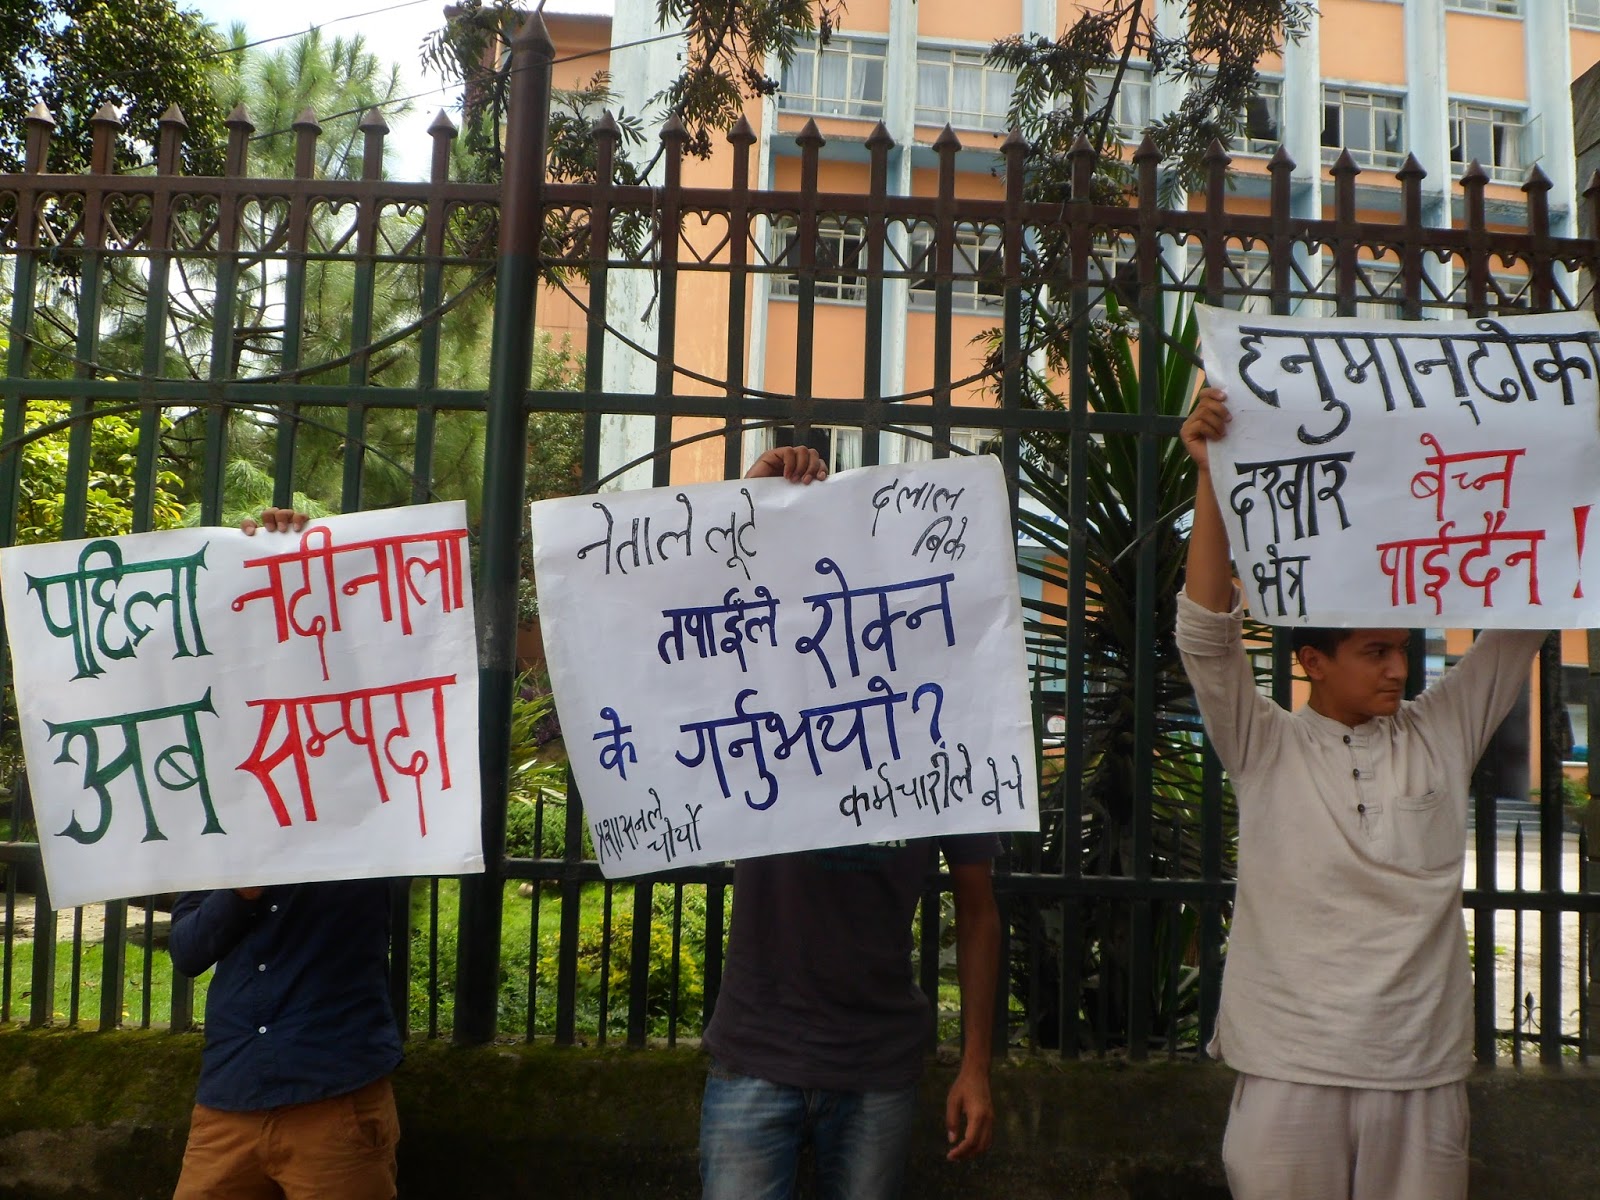 पहिला नदीनाला
अब सम्पदा
नेताले लूटे
दलाल
बिके
तपाईँले रोक्न
के गर्नुभयो?
प्रशासनले
चोर्यो
कर्मचारीले बेचे
हनुमान्ढोका
दरबार
क्षेत्र
बेच्न
पाईदैन!